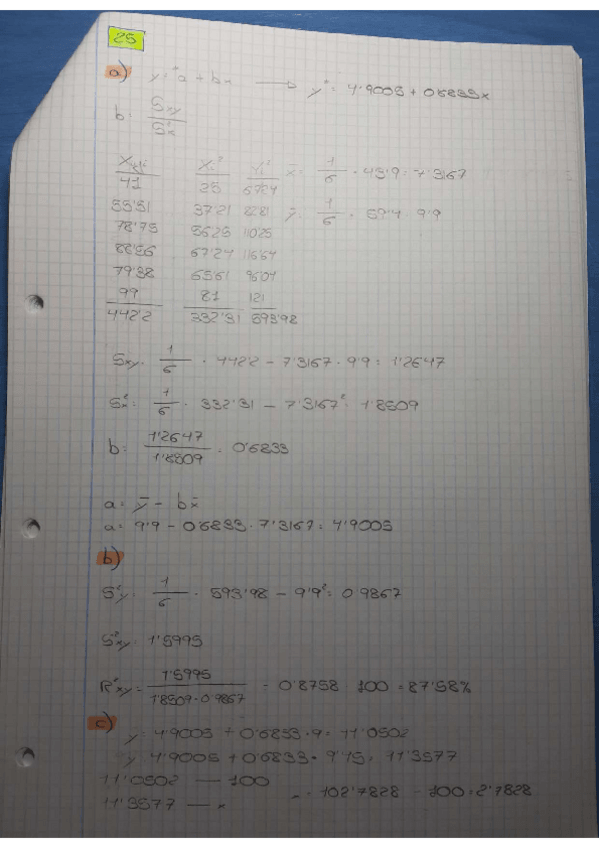 25
a) y* = a + bx → y* = 4'9005 + 0'6833x
b = Sxy / S²x
Xi·Yi Xi² Yi² x̄ = 1/6 · 43'9 = 7'3167
41 25 67'24 ȳ = 1/6 · 59'4 = 9'9
55'51 37'21 82'81
78'75 56'25 110'25
88'56 67'24 116'64
79'38 65'61 96'04
99 81 121
442'2 332'31 593'98
Sxy = 1/6 · 442'2 - 7'3167 · 9'9 = 1'2647
S²x = 1/6 · 332'31 - 7'3167² = 1'8509
b = 1'2647 / 1'8509 = 0'6833
a = ȳ - bx̄
a = 9'9 - 0'6833 · 7'3167 = 4'9005
b)
S²y = 1/6 · 593'98 - 9'9² = 0'9867
S²xy = 1'5995
R²xy = 1'5995 / 1'8509 · 0'9867 = 0'8758 · 100 = 87'58%
c) y = 4'9005 + 0'6833 · 9 = 11'0502
y = 4'9005 + 0'6833 · 9'45 = 11'3577
11'0502 — 100
11'3577 — x = 102'7828 - 100 = 2'7828